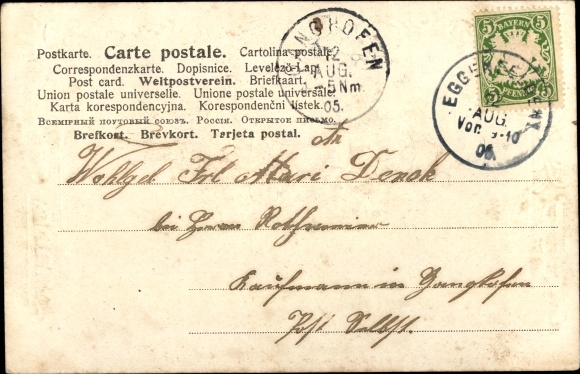 Postkarte. Carte postale. Cartolina postale.
Correspondenzkarte. Dopisnice. Levelező-Lap.
Post card. Weltpostverein. Briefkaart.
Union postale universelle. Unione postale universale.
Karta korespondencyjna. Korespondenční lístek.
Всемірный почтовый союзъ. Россія. Открытое письмо.
Brefkort. Brevkort. Tarjeta postal.
GANGHOFEN
AUG.
05.
5 BAYERN 5
5 PFENNIG 5
EGG
AUG.
Vor.
An
Wohlgeb Frl Mari Denok
bei Herrn
Kaufmann in Gangkofen
Post Selbst.